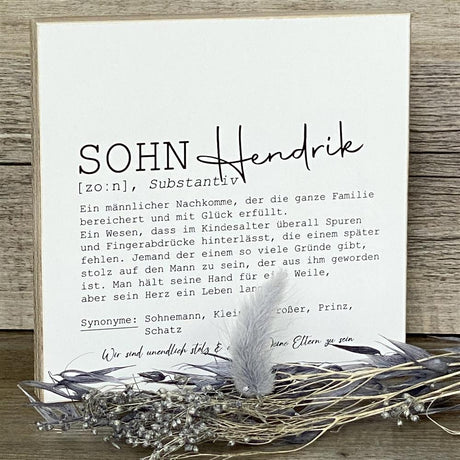 SOHN Hendrik
[zo:n], Substantiv
Ein männlicher Nachkomme, der die ganze Familie
bereichert und mit Glück erfüllt.
Ein Wesen, dass im Kindesalter überall Spuren
und Fingerabdrücke hinterlässt, die einem später
fehlen. Jemand der einem so viele Gründe gibt,
stolz auf den Mann zu sein, der aus ihm geworden
ist. Man hält seine Hand für eine Weile,
aber sein Herz ein Leben lang.
Synonyme: Sohnemann, Großer, Prinz,
Schatz
Wir sind unendlich stolz & Deine Eltern zu sein